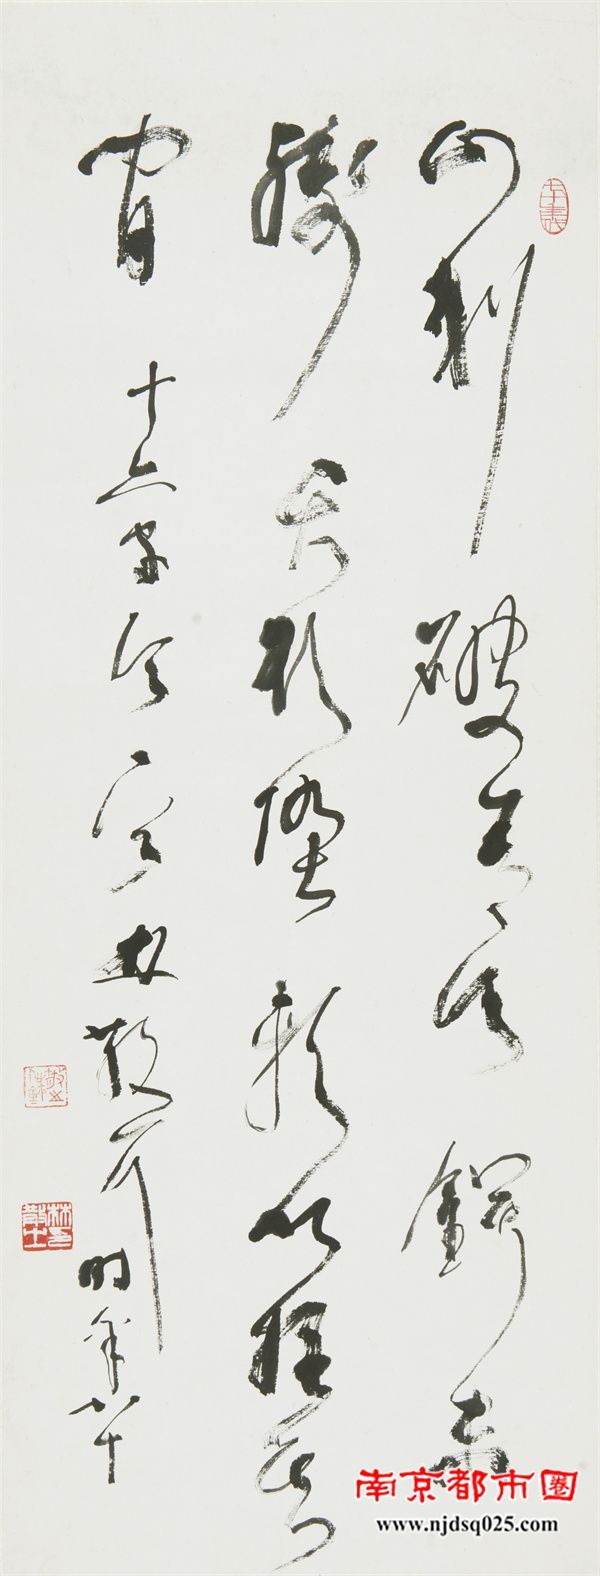 山刺破青天鍔未
殘天欲墮賴以拄其
間
十六字令 林散耳時年八十
南京都市圈
www.njdsq025.com